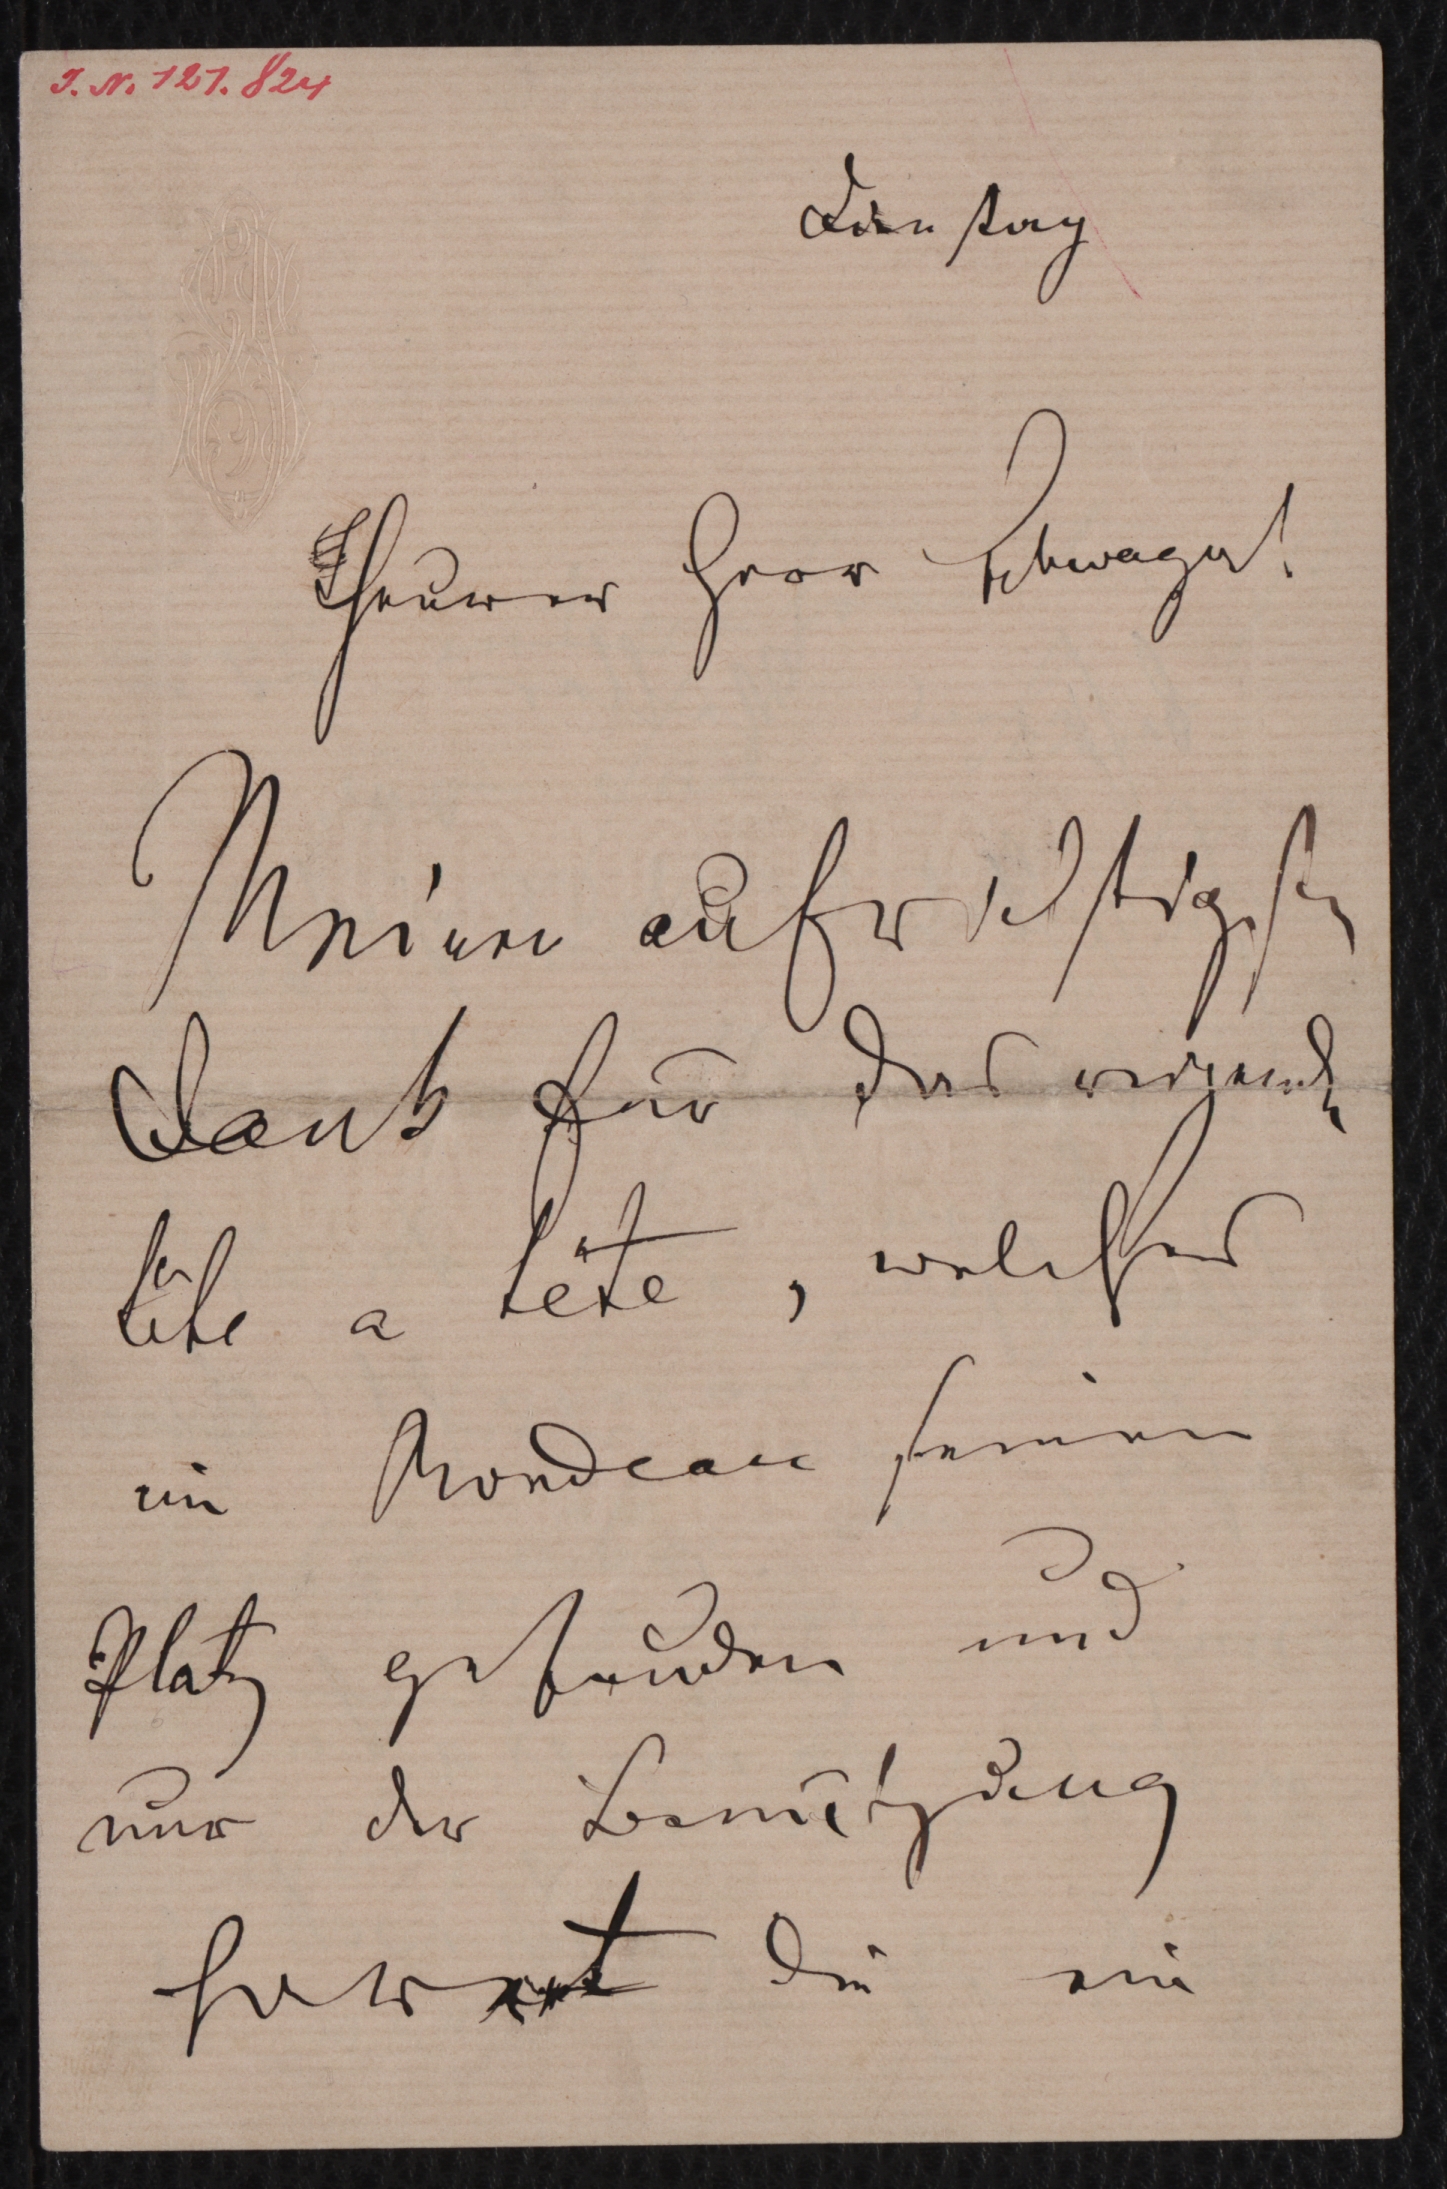 I. N. 121.824
Dienstag
Theurer Herr Schwager!
Meinen aufrichtigsten
Dank für das reizende
tête a tête, welches
im Bondeau seinen
Platz gefunden und
nur der Benützung
harrt die ein